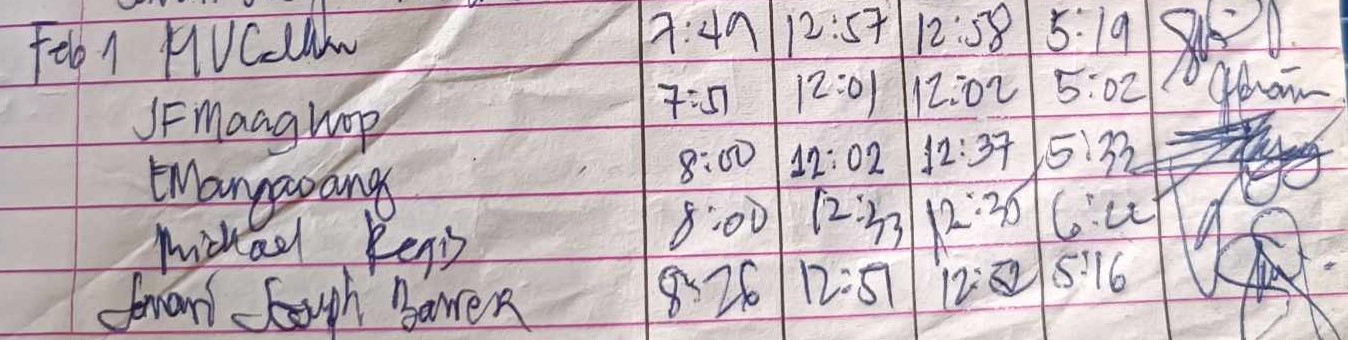 Feb 1 7:49 12:57 12:58 5:19
JFMaaghop 7:51 12:01 12:02 5:02
EMangaoang 8:00 12:02 12:37 5:33
Michael Regis 8:00 12:33 12:35
Joseph Barrera 8:26 12:51 12:52 5:16